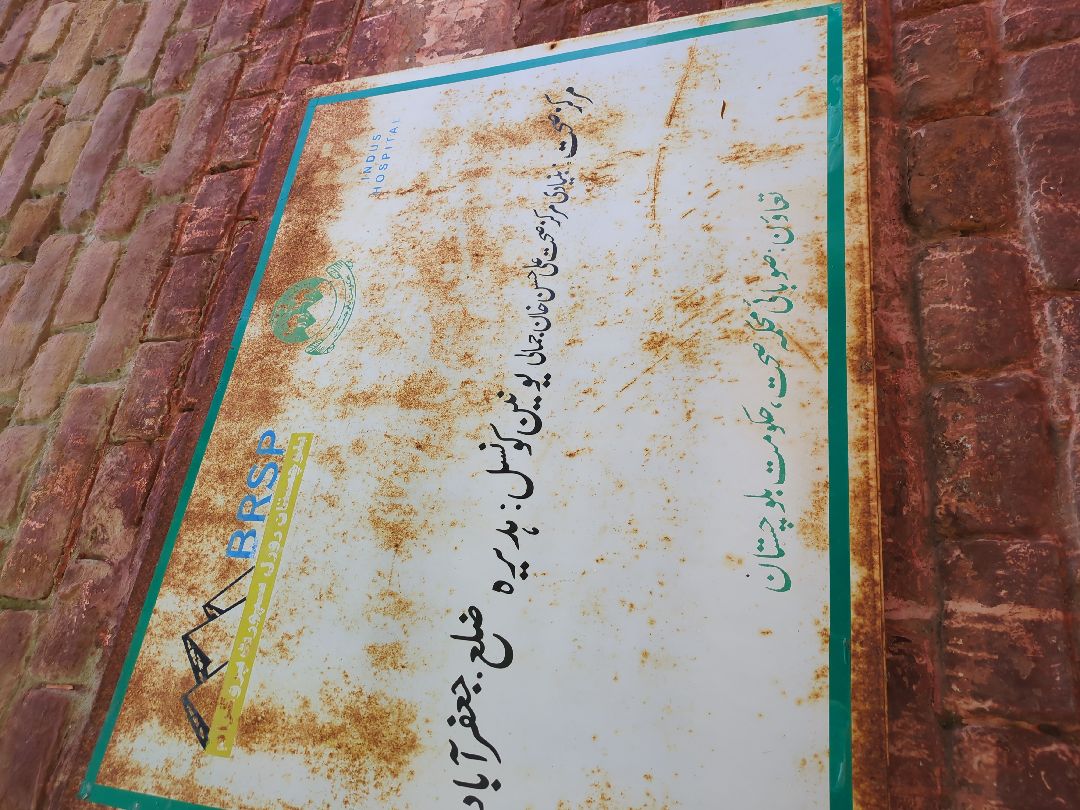 BRSP
بلوچستان رورل سپورٹ پروگرام
INDUS
HOSPITAL
مرکز صحت : بنیادی مرکز صحت علی حسن خان جمالی یونین کونسل : ہدیرہ
ضلع . جعفر آباد
تعاون : صوبائی محکمہ صحت ، حکومت بلوچستان